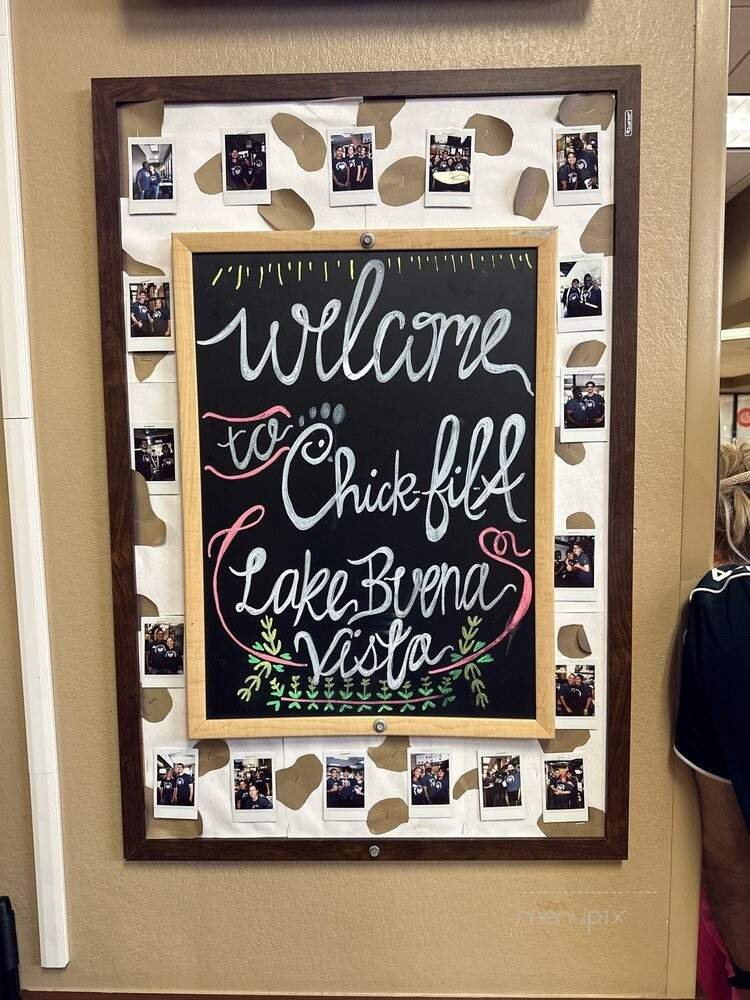 Welcome
to Chick-fil-A
Lake Buena
Vista
Quartet
menupix